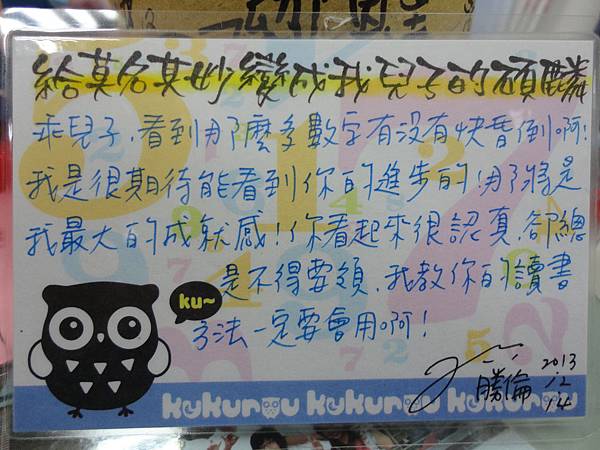 給莫名其妙變成我兒子的碩麟
乖兒子.看到那麼多數字有沒有快昏倒啊!
我是很期待能看到你的進步的!那將是
我最大的成就感!你看起來很認真,卻總
是不得要領.我教你的讀書
方法一定要會用啊!
ku~
勝倫
2013
12
14
kukurou kukurou kukurou